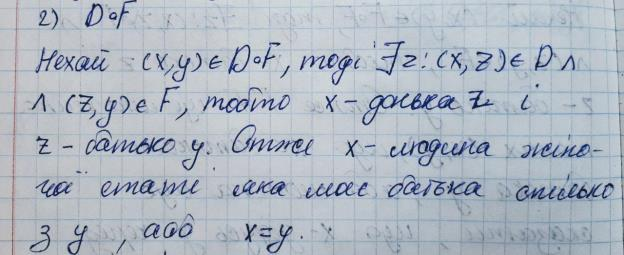 2) D∘F
Нехай (x,y)∈D∘F, тоді ∃z: (x,z)∈D∧
∧ (z,y)∈F, тобто x-донька z і
z-батько y. Отже x-людина жіно-
чої статі яка має батька спільно
з y, або x=y.